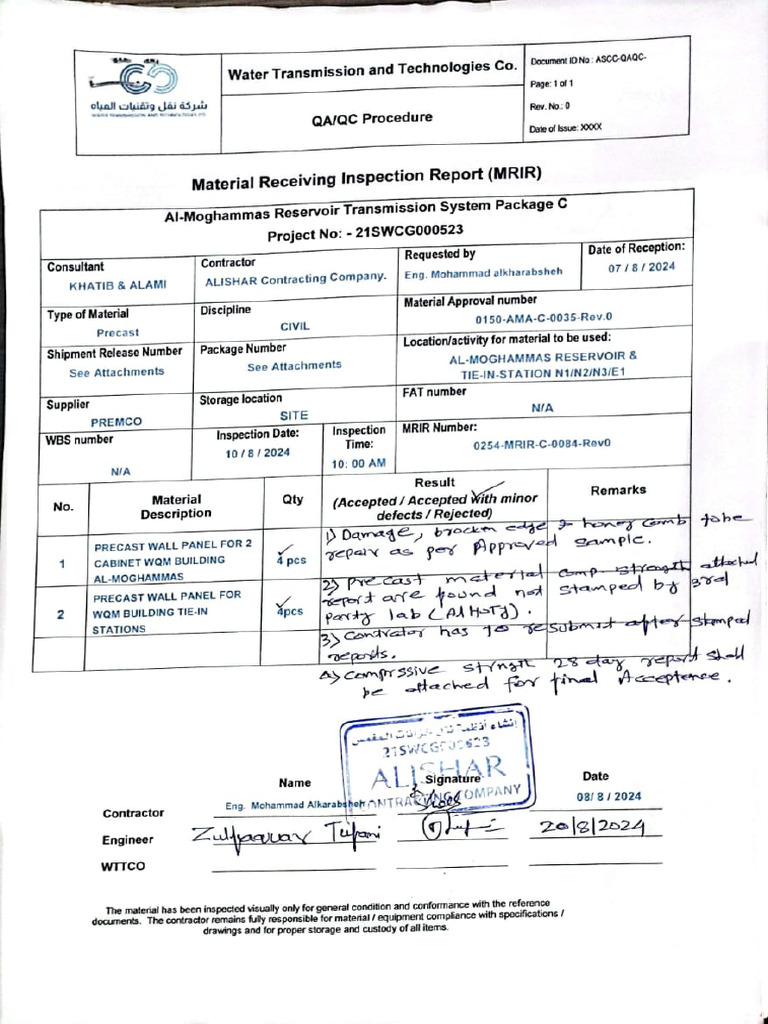 شركة نقل وتقنيات المياه
WATER TRANSMISSION AND TECHNOLOGIES CO.
Water Transmission and Technologies Co.
QA/QC Procedure
Document ID No : ASCC-QAQC-
Page: 1 of 1
Rev. No.: 0
Date of Issue: XXXX
Material Receiving Inspection Report (MRIR)
Al-Moghammas Reservoir Transmission System Package C
Project No: - 21SWCG000523
Consultant
KHATIB & ALAMI
Contractor
ALISHAR Contracting Company.
Requested by
Eng. Mohammad alkharabsheh
Date of Reception:
07 / 8 / 2024
Type of Material
Precast
Discipline
CIVIL
Material Approval number
0150-AMA-C-0035-Rev.0
Shipment Release Number
See Attachments
Package Number
See Attachments
Location/activity for material to be used:
AL-MOGHAMMAS RESERVOIR &
TIE-IN-STATION N1/N2/N3/E1
Supplier
PREMCO
Storage location
SITE
FAT number
N/A
WBS number
N/A
Inspection Date:
10 / 8 / 2024
Inspection
Time:
10: 00 AM
MRIR Number:
0254-MRIR-C-0084-Rev0
No.
Material
Description
Qty
Result
(Accepted / Accepted with minor
defects / Rejected)
Remarks
1
PRECAST WALL PANEL FOR 2
CABINET WQM BUILDING
AL-MOGHAMMAS
4 pcs
2
PRECAST WALL PANEL FOR
WQM BUILDING TIE-IN
STATIONS
4pcs
1) Damage, brockn edge & honey comb to be
repair as per Approved sample.
2) Precast material comp. strength attached
report are found not stamped by 3rd
party lab (AlHoty).
3) Contrator has to resubmit after stamped
reports.
4) Compressive strngth 28 day report shall
be attached for final Acceptence.
21SWCG000523
ALISHAR
CONTRACTING COMPANY
Name
Signature
Date
Contractor
Eng. Mohammad Alkarabsheh
08/ 8 / 2024
Engineer
Zulfaquar
20/8/2024
WTTCO
The material has been inspected visually only for general condition and conformance with the reference
documents. The contractor remains fully responsible for material / equipment compliance with specifications /
drawings and for proper storage and custody of all items.